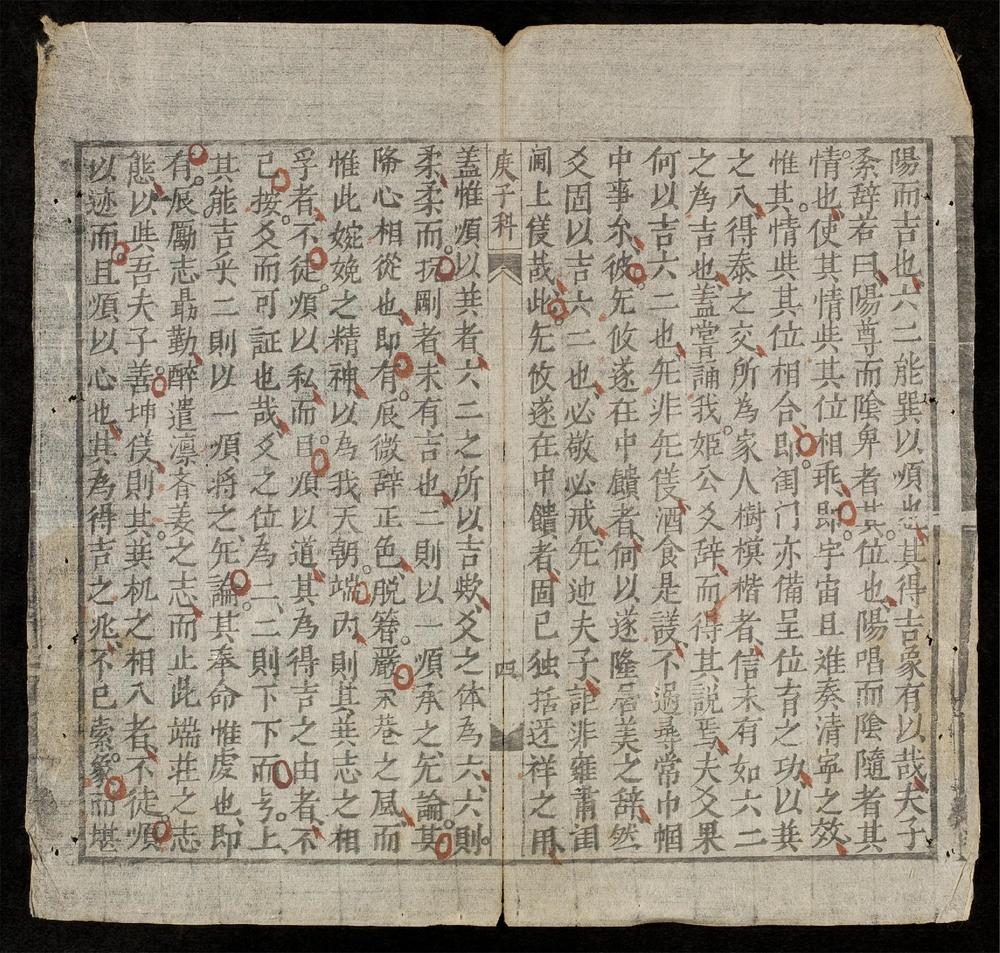 陽而吉也六二能巽以順也其得吉象有以哉夫子
系辞若曰陽尊而陰卑者其位也陽唱而陰隨者其
情也使其情與其位相乖即宇宙且难奏清寧之效
惟其情與其位相合即闺门亦備呈位育之功以其
之八得泰之交所為家人樹模楷者信未有如六二
之為吉也盖嘗誦我姬公爻辞而得其説焉夫爻果
何以吉六二也无非无儀酒食是議不過尋常巾帼
中事尒彼无攸遂在中饋者何以遂隆居美之辞然
爻固以吉六二也必敬必戒无違夫子詎非雍肅闺
閫上儀哉此无攸遂在中饋者固已独括迓祥之用
庚子科
四
盖惟順以其者六二之所以吉歟爻之体為六六則
柔柔而抗剛者未有吉也二則以一順承之尤論其
降心相從也即有辰微辞正色脱簪嚴永巷之風而
惟此婉娩之精神以為我天朝端內則其其志之相
孚者不徒順以私而且順以道其為得吉之由者不
已按爻而可証也哉爻之位為二二則下下而亏上
其能吉乎二則以一順將之无論其奉命惟虔也即
有辰勵志最勤醉遣凛斉姜之志而止此端莊之志
態以與吾夫子善坤儀則其其机之相入者不徒順
以迹而且順以心也其為得吉之兆不已索象而堪